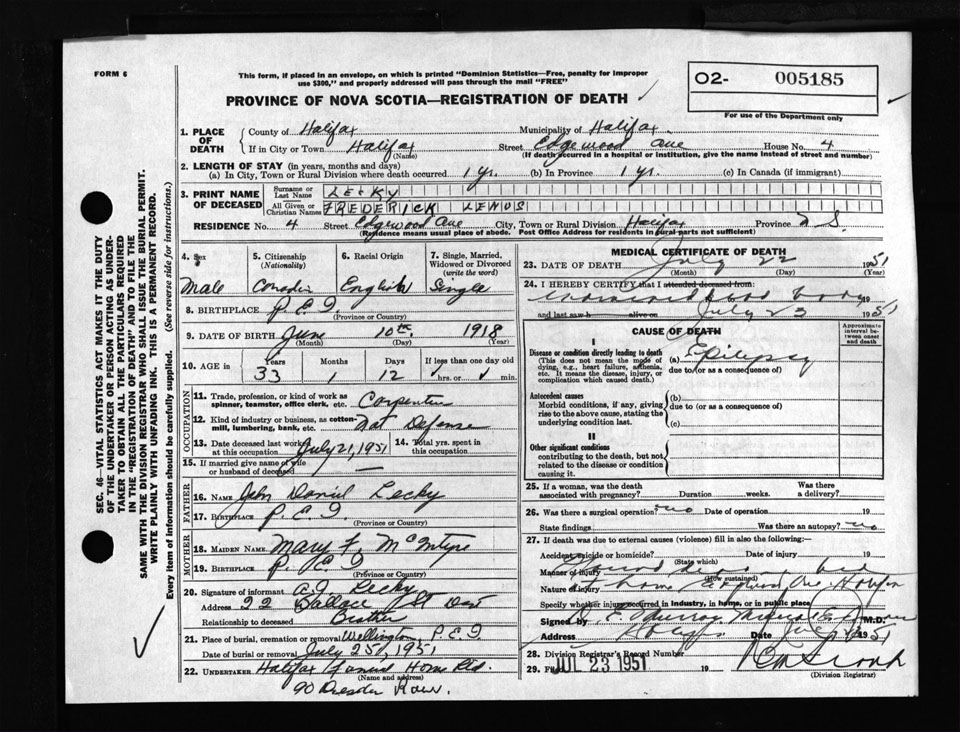 FORM 6
This form, if placed in an envelope, on which is printed "Dominion Statistics—Free, penalty for improper
use $300," and properly addressed will pass through the mail "FREE"
PROVINCE OF NOVA SCOTIA—REGISTRATION OF DEATH
O2- 005185
For use of the Department only
SEC. 46—VITAL STATISTICS ACT MAKES IT THE DUTY
OF THE UNDERTAKER OR PERSON ACTING AS UNDER-
TAKER TO OBTAIN ALL THE PARTICULARS REQUIRED
IN THE "REGISTRATION OF DEATH" AND TO FILE THE
SAME WITH THE DIVISION REGISTRAR WHO SHALL ISSUE THE BURIAL PERMIT.
WRITE PLAINLY WITH UNFADING INK. THIS IS A PERMANENT RECORD.
Every item of information should be carefully supplied. (See reverse side for instructions.)
1. PLACE OF DEATH County of Halifax Municipality of Halifax
If in City or Town Halifax Street Edgewood Ave House No. 4
(Name) (If death occurred in a hospital or institution, give the name instead of street and number)
2. LENGTH OF STAY (in years, months and days)
(a) In City, Town or Rural Division where death occurred 1 yr. (b) In Province 1 yr. (c) In Canada (if immigrant)
3. PRINT NAME OF DECEASED Surname or Last Name LECKY
All Given or Christian Names FREDERICK LENUS
RESIDENCE No. 4 Street Edgewood Ave City, Town or Rural Division Halifax Province N S.
(Residence means usual place of abode. Post Office Address for residents in rural parts not sufficient)
4. Sex Male
5. Citizenship (Nationality) Canadian
6. Racial Origin English
7. Single, Married, Widowed or Divorced (write the word) Single
8. BIRTHPLACE P.E.I.
(Province or Country)
9. DATE OF BIRTH June 10th 1918
(Month) (Day) (Year)
10. AGE in Years 33 Months 1 Days 12 If less than one day old hrs. or min.
OCCUPATION
11. Trade, profession, or kind of work as spinner, teamster, office clerk, etc. Carpenter
12. Kind of industry or business, as cotton-mill, lumbering, bank, etc. Nat Defense
13. Date deceased last worked at this occupation July 21, 1951 14. Total yrs. spent in this occupation
15. If married give name of wife or husband of deceased —
FATHER
16. NAME John Daniel Lecky
17. BIRTHPLACE P.E.I
(Province or Country)
MOTHER
18. MAIDEN NAME Mary F. McIntyre
19. BIRTHPLACE P.E.I
(Province or Country)
20. Signature of informant A.J. Lecky
Address 22 Wallace St Dart
Relationship to deceased Brother
21. Place of burial, cremation or removal Wellington, P.E.I
Date of burial or removal July 25, 1951
22. UNDERTAKER Halifax Funeral Home Ltd.
(Name and address)
90 Dresden Row.
MEDICAL CERTIFICATE OF DEATH
23. DATE OF DEATH July 22 1951
(Month) (Day) (Year)
24. I HEREBY CERTIFY that I attended deceased from:
examined dead body 19
and last saw h alive on July 23 1951
CAUSE OF DEATH
Approximate interval between onset and death
I
Disease or condition directly leading to death (a) Epilepsy
(This does not mean the mode of dying, e.g., heart failure, asthenia, etc. It means the disease, injury, or complication which caused death.) due to (or as a consequence of)
Antecedent causes (b)
Morbid conditions, if any, giving rise to the above cause, stating the underlying condition last. due to (or as a consequence of)
(c)
II
Other significant conditions
contributing to the death, but not related to the disease or condition causing it.
25. If a woman, was the death associated with pregnancy? Duration weeks. Was there a delivery?
26. Was there a surgical operation? no Date of operation 19
State findings Was there an autopsy? no
27. If death was due to external causes (violence) fill in also the following:—
Accident, suicide or homicide? Date of injury 19
(State which)
Manner of injury Found dead in bed
(How sustained)
Nature of injury at home Edgewood Ave. Halifax
Specify whether injury occurred in industry, in home, or in public place
Signed by E. Murray M.D.
Address Halifax Date July 1951
28. Division Registrar's Record Number
29. Filed JUL 23 1951 19
(Division Registrar)